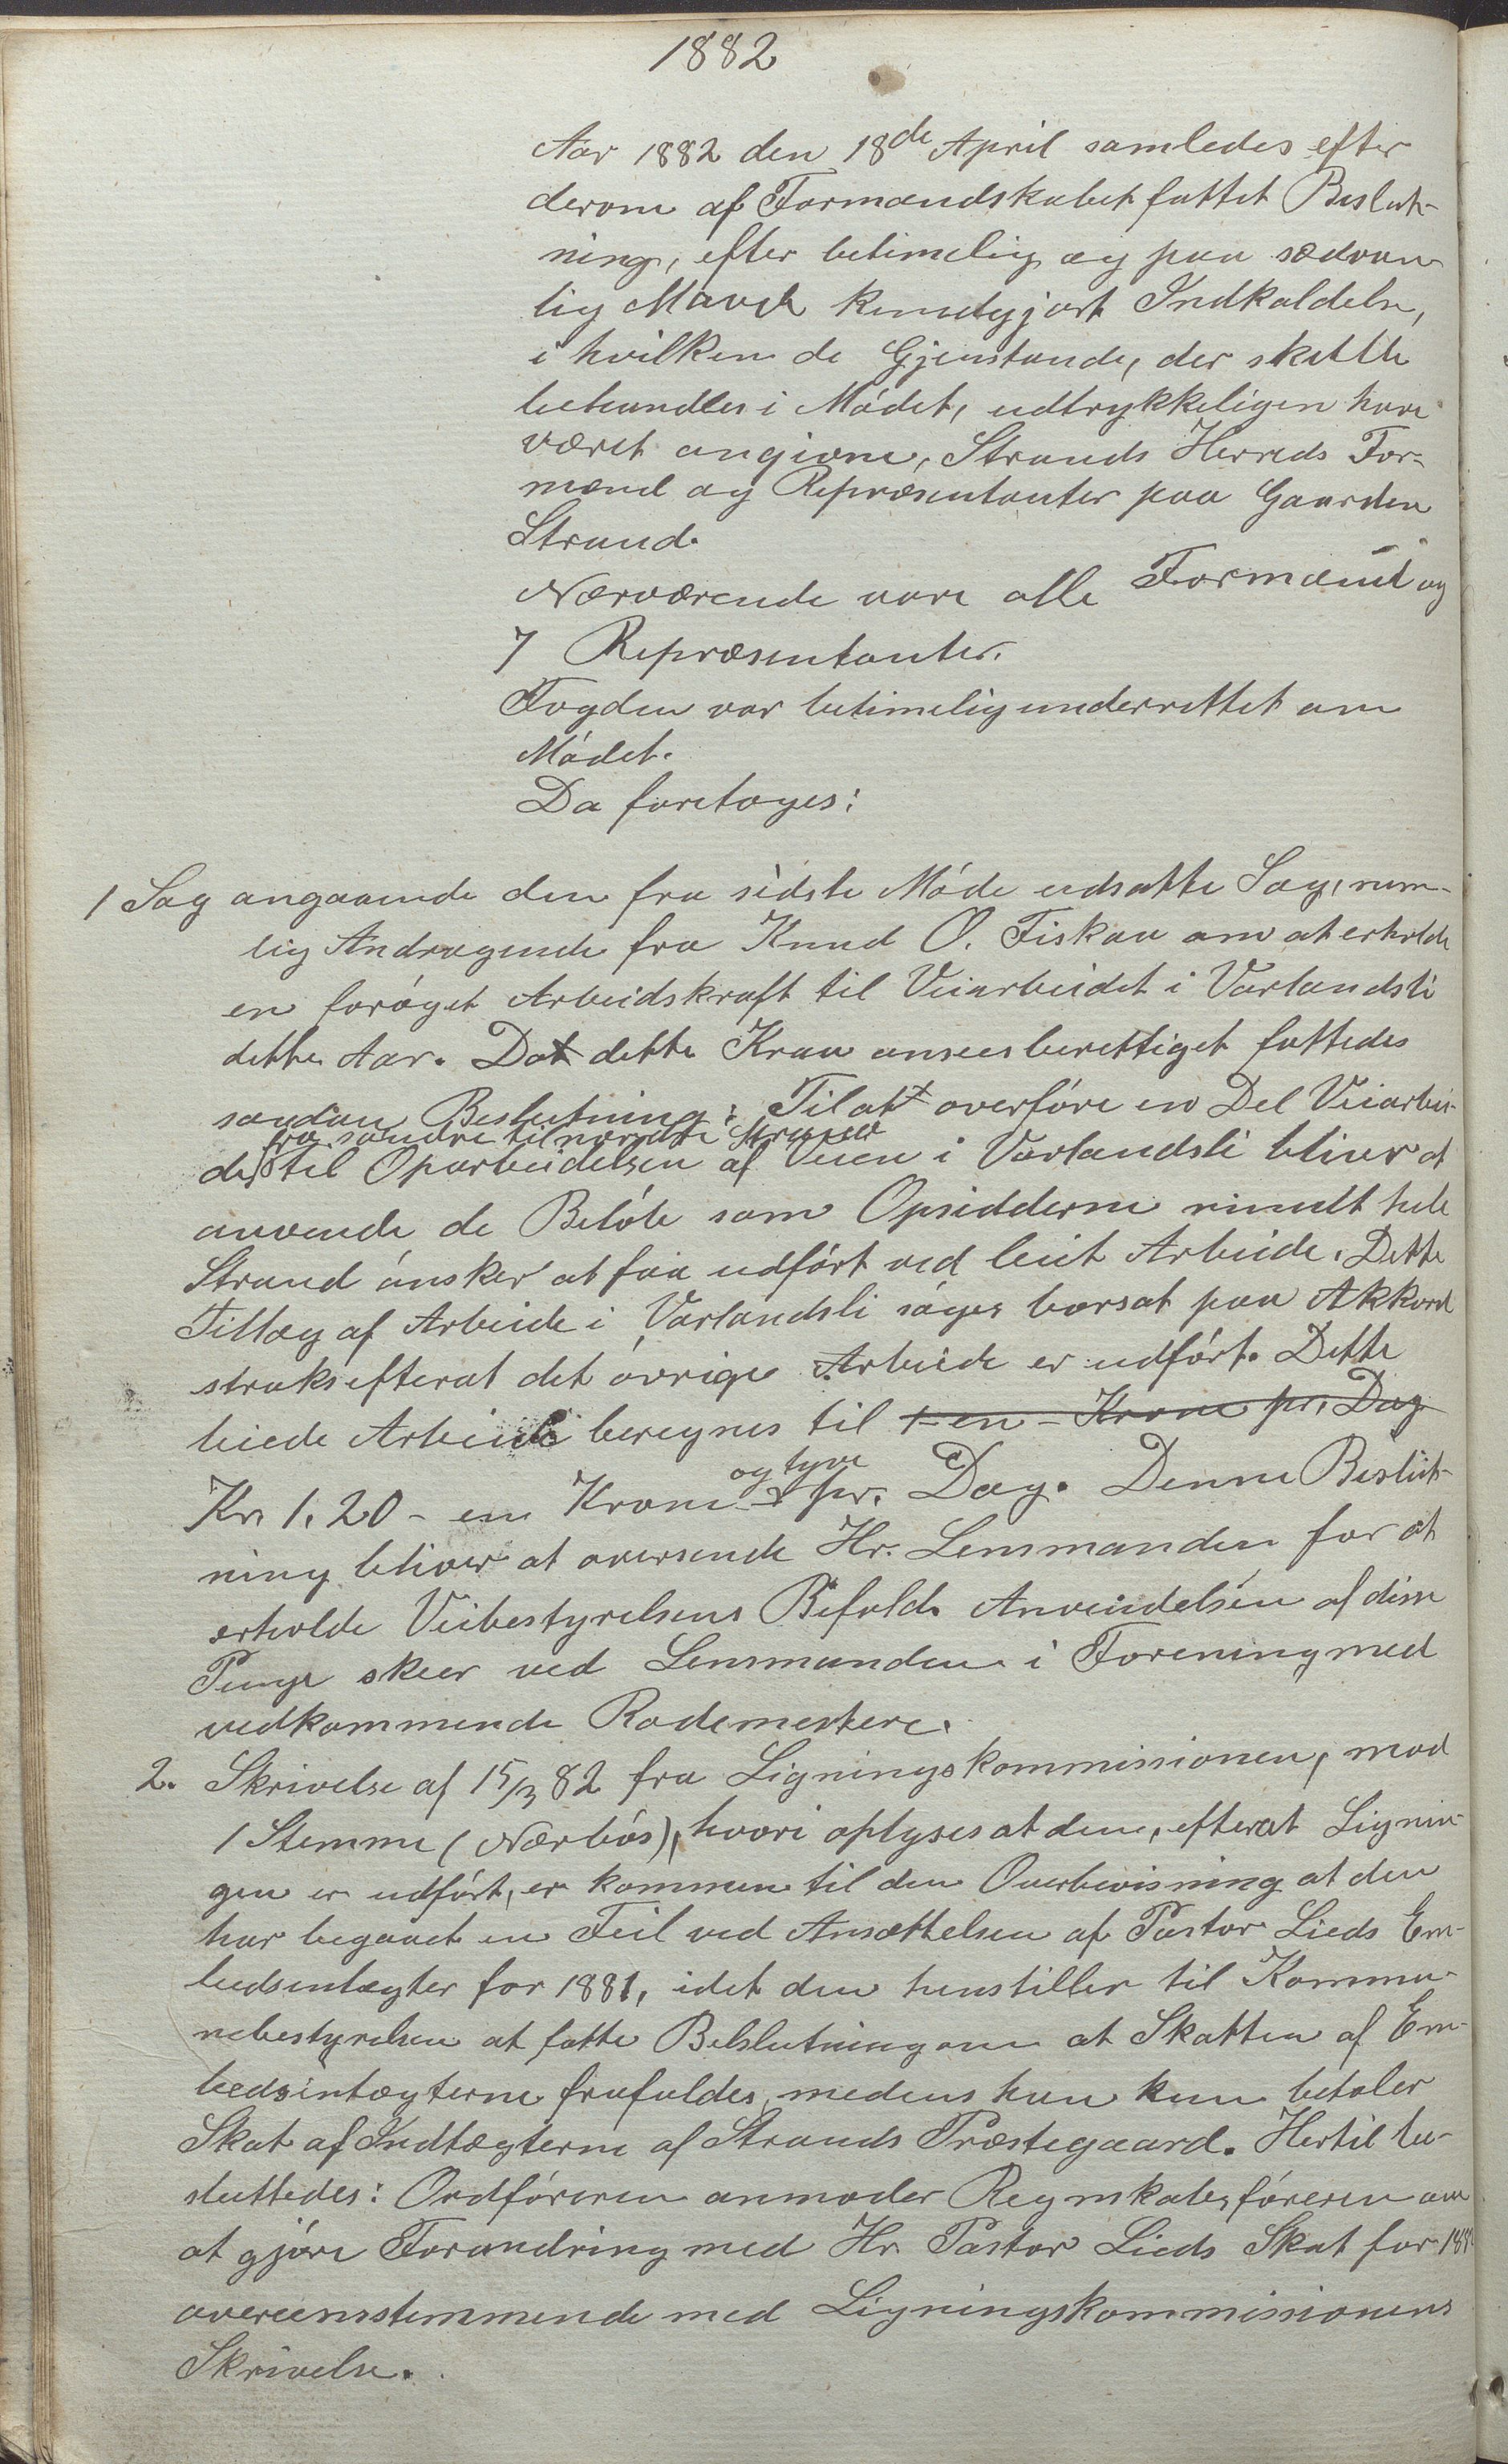 1882
Aar 1882 den 18de April samledes efter
derom af Formandskabet fattet Beslut-
ning, efter betimelig og paa sædvan-
lig Maade kundgjort Indkaldelse,
i hvilken de Gjenstande, der skulle
behandles i Mødet, udtrykkeligen have
været angivne, Strands Herreds For-
mænd og Repræsentanter paa Gaarden
Strand.
Nærværende vare alle Formænd og
7 Repræsentanter.
Fogden var betimelig underrettet om
Mødet.
Da foretoges:
1 Sag angaaende den fra sidste Møde udsatte Sag, nem-
lig Andragende fra Knud O. Fiskaa om at erholde
en forøget Arbeidskraft til Veiarbeidet i Vorlandsli
dette Aar. Dat dette Krav ansees berettiget fattedes
saadan Beslutning: Til at overføre en Del Veiarbei-
fra søndre til nordre Strand
de til Oparbeidelsen af Veien i Vorlandsli bliver at
anvende de Beløb som Opsidderne rundt hele
Strand ønsker at faa udført ved leiet Arbeide. Dette
Tillæg af Arbeide i Vorlandsli søges bortsat paa Akkord
straks efterat det øvrige Arbeide er udført. Dette
leiede Arbeide beregnes til 1 en - Krone pr. Dag
og tyve
Kr. 1.20 - en Krone pr. Dag. Denne Beslut-
ning bliver at oversende Hr. Lensmanden for at
erholde Veibestyrelsens Bifald. Anvendelsen af disse
Penge skeer ved Lensmanden i Forening med
vedkommende Rodemestere.
2. Skrivelse af 15/3 82 fra Ligningskommissionen, mod
1 Stemme (Nærbøs), hvori oplyses at den, efterat Lignin-
gen er udført, er kommen til den Overbevisning at den
har begaaet en Feil ved Ansættelsen af Pastor Lieds Em-
bedsintægter for 1881, idet den henstiller til Kommu-
nebestyrelsen at fatte Belslutning om at Skatten af Em-
bedsintægterne frafaldes, medens han kun betaler
Skat af Indtægterne af Strands Præstegaard. Hertil be-
sluttedes: Ordføreren anmoder Regnskabsføreren om
at gjøre Forandring med Hr. Pastor Lieds Skat for 1881
overeensstemmende med Ligningskommissionens
Skrivelse.